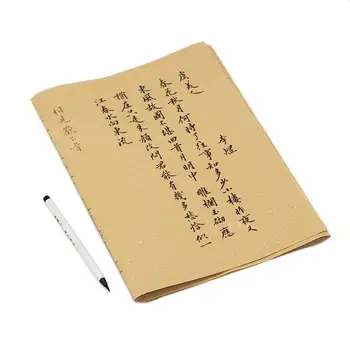 虞美人
李煜
春花秋月何時了往事知多少小樓昨夜又
東風故國不堪回首月明中 雕欄玉砌應
猶在只是朱顏改問君能有幾多愁恰似一
江春水向東流